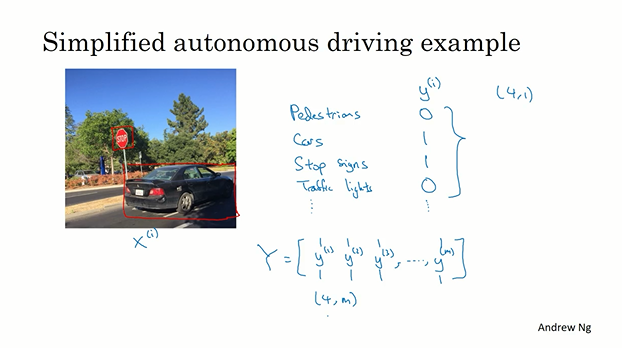 Simplified autonomous driving example
STOP
y^(i) (4,1)
Pedestrians 0
Cars 1
Stop signs 1
Traffic lights 0
⋮ ⋮
x^(i)
Y = [ y^(1) y^(2) y^(3), ...., y^(m) ]
(4, m)
Andrew Ng